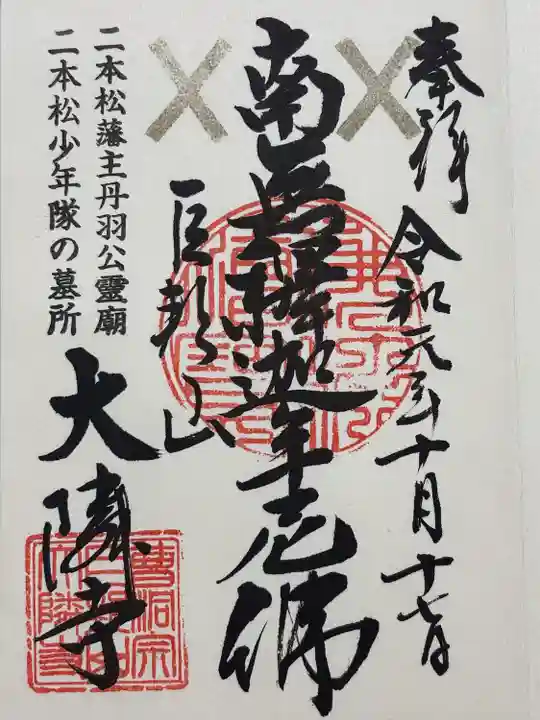 奉拝 令和元年十月十七日
南無釋迦牟尼佛
巨邦山
大隣寺
二本松藩主丹羽公霊廟
二本松少年隊の墓所
曹洞宗